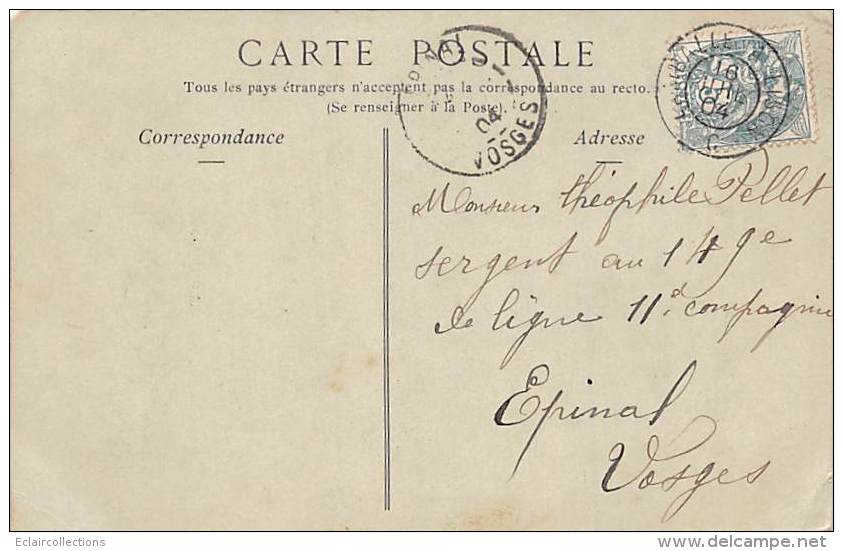 CARTE POSTALE
Tous les pays étrangers n'acceptent pas la correspondance au recto.
(Se renseigner à la Poste).
Correspondance
Adresse
04
VOSGES
LAMBALLE A LISON
16
04
Monsieur Théophile Pellet
sergent au 149e
de ligne 11e compagnie
Epinal
Vosges
Eclaircollections
delcampe.net